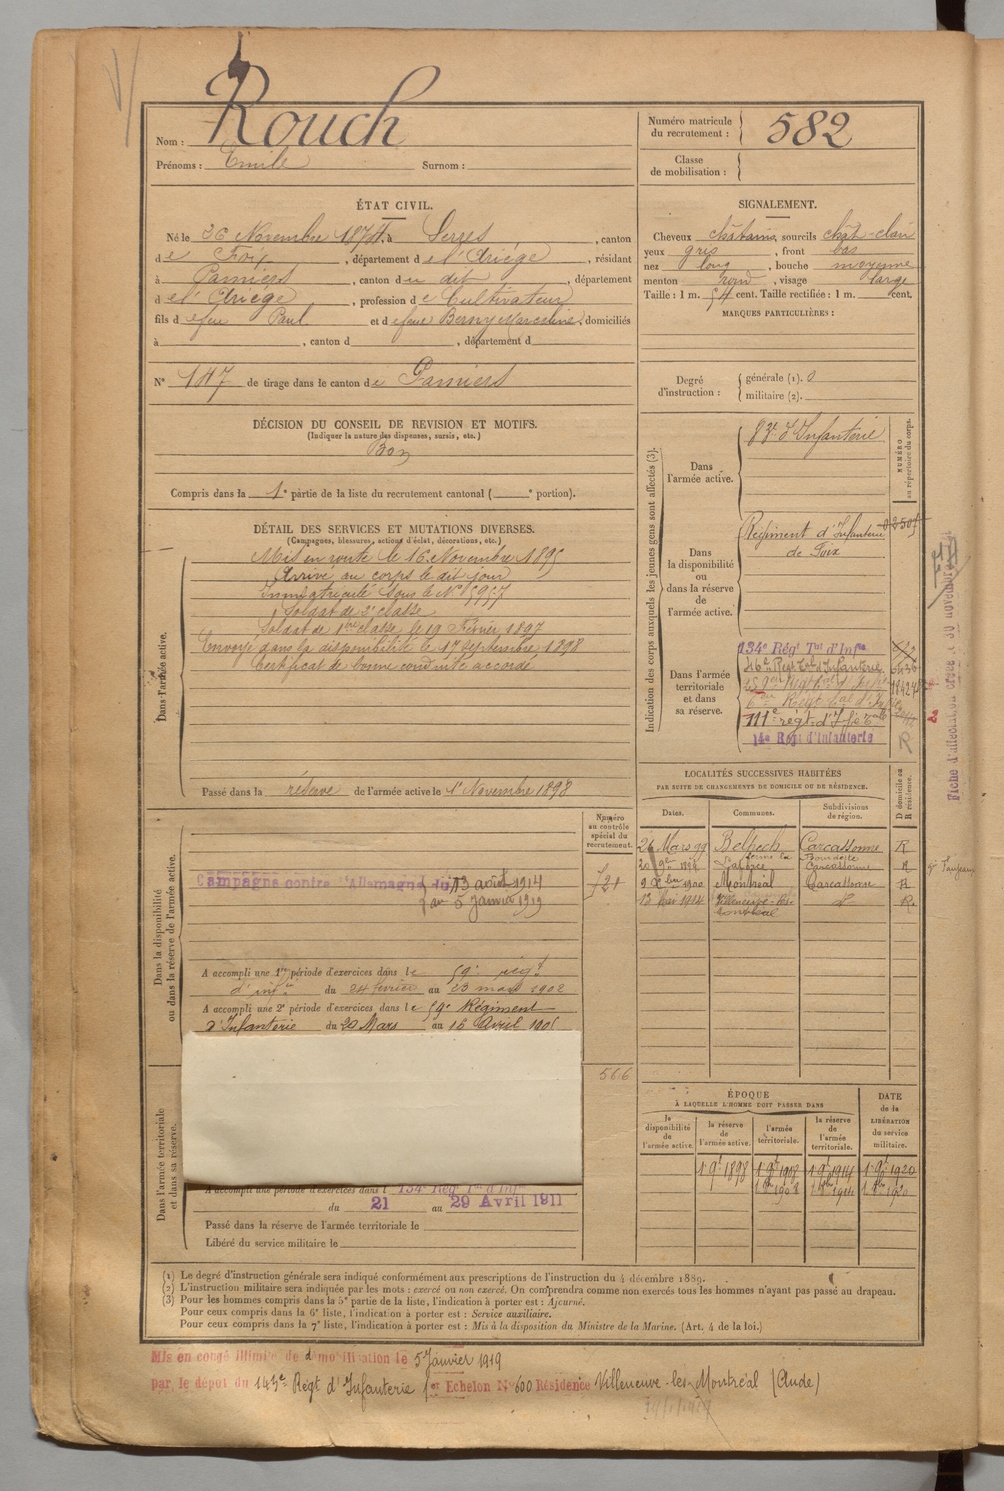 Nom : Rouch
Prénoms : Emile Surnom :
Numéro matricule du recrutement : 582
Classe de mobilisation :
ÉTAT CIVIL.
Né le 26 Novembre 1874, à Serres, canton
de Foix, département de l'Ariège, résidant
à Pamiers, canton du dit, département
de l'Ariège, profession de Cultivateur
fils de feu Paul et de feue Berny Marceline, domiciliés
à , canton d , département d
N° 147 de tirage dans le canton de Pamiers
SIGNALEMENT.
Cheveux châtains, sourcils chât-clair
yeux gris, front bas
nez long, bouche moyenne
menton rond, visage large
Taille : 1 m. 54 cent. Taille rectifiée : 1 m. cent.
MARQUES PARTICULIÈRES :
Degré d'instruction : générale (1). 0
militaire (2).
DÉCISION DU CONSEIL DE REVISION ET MOTIFS.
(Indiquer la nature des dispenses, sursis, etc.)
Bon
Compris dans la 1e partie de la liste du recrutement cantonal ( e portion).
DÉTAIL DES SERVICES ET MUTATIONS DIVERSES.
(Campagnes, blessures, actions d'éclat, décorations, etc.)
Dans l'armée active.
Mis en route le 16 Novembre 1895
Arrivé au corps le dit jour
Immatriculé sous le N°
Soldat de 2e classe
Soldat de 1ère classe le 19 Février 1897
Envoyé dans la disponibilité le 17 septembre 1898
Certificat de bonne conduite accordé
Passé dans la réserve de l'armée active le 1er Novembre 1898
Indication des corps auxquels les jeunes gens sont affectés (3).
NUMÉRO au répertoire du corps.
Dans l'armée active.
83e d'Infanterie
Dans la disponibilité ou dans la réserve de l'armée active.
Régiment d'Infanterie
de Foix
Dans l'armée territoriale et dans sa réserve.
134e Régt Tal d'Infie
46e Régt Tal d'Infanterie
111e régt d'Ifie Tale
14e Régt d'Infanterie
R
Fiche d'affectation créée le 30 novembre
Dans la disponibilité ou dans la réserve de l'armée active.
Numéro au contrôle spécial du recrutement.
721
Campagne contre l'Allemagne du 13 août 1914
au 5 janvier 1919
A accompli une 1re période d'exercices dans le 59e régt
d'infie du 24 février au 23 mars 1902
A accompli une 2e période d'exercices dans le 59e Régiment
d'Infanterie du 20 Mars au
566
Dans l'armée territoriale et dans sa réserve.
A accompli une période d'exercices dans l 134e Régt Tal d'Infie
du 21 au 29 Avril 1911
Passé dans la réserve de l'armée territoriale le
Libéré du service militaire le
LOCALITÉS SUCCESSIVES HABITÉES
PAR SUITE DE CHANGEMENTS DE DOMICILE OU DE RÉSIDENCE.
D domicile ou R résidence.
Dates. Communes. Subdivisions de région.
26 Mars 99 Belpech Carcassonne R
Carcassonne R
1900 Montréal Carcassonne R
13 Mar 1914 Villeneuve-les-Montréal d° R.
ÉPOQUE
A LAQUELLE L'HOMME DOIT PASSER DANS
DATE de la LIBÉRATION du service militaire.
la disponibilité de l'armée active. la réserve de l'armée active. l'armée territoriale. la réserve de l'armée territoriale.
1 9t 1898 1 9t 1908 1 9t 1914 1 9t 1920
(1) Le degré d'instruction générale sera indiqué conformément aux prescriptions de l'instruction du 4 décembre 1889.
(2) L'instruction militaire sera indiquée par les mots : exercé ou non exercé. On comprendra comme non exercés tous les hommes n'ayant pas passé au drapeau.
(3) Pour les hommes compris dans la 5e partie de la liste, l'indication à porter est : Ajourné.
Pour ceux compris dans la 6e liste, l'indication à porter est : Service auxiliaire.
Pour ceux compris dans la 7e liste, l'indication à porter est : Mis à la disposition du Ministre de la Marine. (Art. 4 de la loi.)
Mis en congé illimité de démobilisation le 5 Janvier 1919
par le dépôt du 143e Régt d'Infanterie 1er Echelon N° 600 Résidence Villeneuve-les-Montréal (Aude)